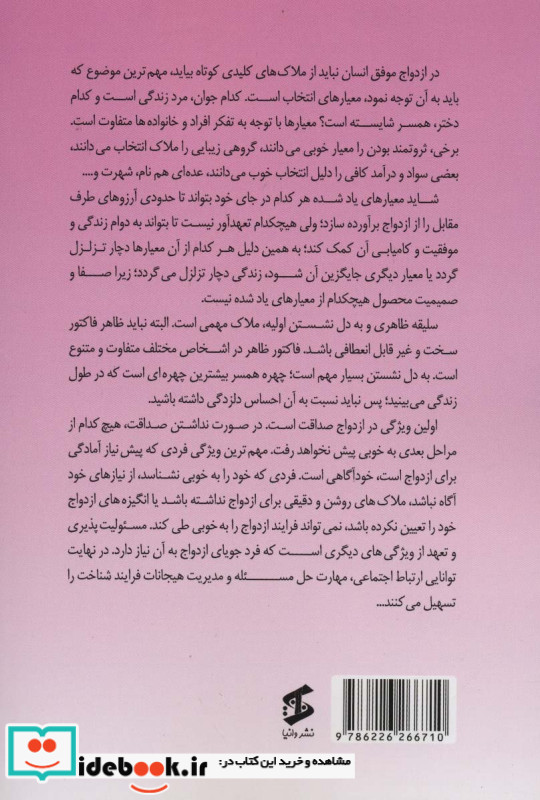 در ازدواج موفق انسان نباید از ملاک‌های کلیدی کوتاه بیاید، مهم‌ترین موضوع که
باید به آن توجه نمود، معیارهای انتخاب است. کدام جوان، مرد زندگی است و کدام
دختر، همسر شایسته است؟ معیارها با توجه به تفکر افراد و خانواده‌ها متفاوت است.
برخی، ثروتمند بودن را معیار خوبی می‌دانند، گروهی زیبایی را ملاک انتخاب می‌دانند،
بعضی سواد و درآمد کافی را دلیل انتخاب خوب می‌دانند، عده‌ای هم نام، شهرت و....
شاید معیارهای یاد شده هر کدام در جای خود بتواند تا حدودی آرزوهای طرف
مقابل را از ازدواج برآورده سازد؛ ولی هیچکدام تعهدآور نیست تا بتواند به دوام زندگی و
موفقیت و کامیابی آن کمک کند؛ به همین دلیل هر کدام از آن معیارها دچار تزلزل
گردد یا معیار دیگری جایگزین آن شود، زندگی دچار تزلزل می گردد؛ زیرا صفا و
صمیمیت محصول هیچکدام از معیارهای یاد شده نیست.
سلیقه ظاهری و به دل نشستن اولیه، ملاک مهمی است. البته نباید ظاهر فاکتور
سخت و غیر قابل انعطافی باشد. فاکتور ظاهر در اشخاص مختلف متفاوت و متنوع
است. به دل نشستن بسیار مهم است؛ چهره همسر بیشترین چهره‌ای است که در طول
زندگی می‌بینید؛ پس نباید نسبت به آن احساس دلزدگی داشته باشید.
اولین ویژگی در ازدواج صداقت است. در صورت نداشتن صداقت، هیچ کدام از
مراحل بعدی به خوبی پیش نخواهد رفت. مهم ترین ویژگی فردی که پیش نیاز آمادگی
برای ازدواج است، خودآگاهی است. فردی که خود را به خوبی نشناسد، از نیازهای خود
آگاه نباشد، ملاک های روشن و دقیقی برای ازدواج نداشته باشد یا انگیزه های ازدواج
خود را تعیین نکرده باشد، نمی تواند فرایند ازدواج را به خوبی طی کند. مسئولیت پذیری
و تعهد از ویژگی های دیگری است که فرد جویای ازدواج به آن نیاز دارد. در نهایت
توانایی ارتباط اجتماعی، مهارت حل مسئله و مدیریت هیجانات فرایند شناخت را
تسهیل می کنند...
نشر وانیا
9 786226 266710
مشاهده و خرید این کتاب در:
idebook.ir